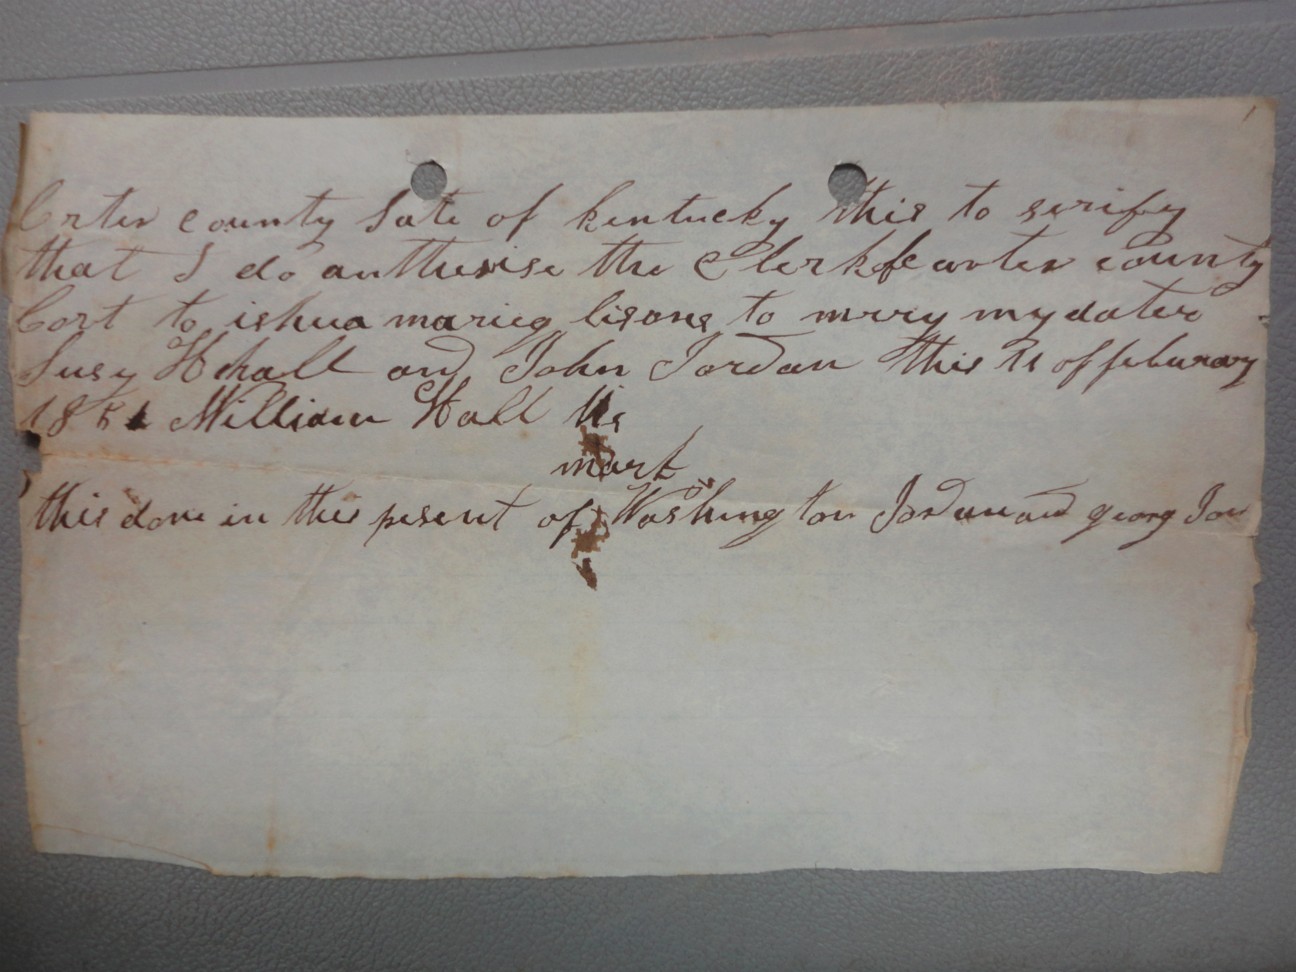 Crter county Sate of kentucky this to serify
that I do authorise the Clerk of carter county
Cort to ishua marieg lisons to mrry my dater
Susy H hall and John Jordan this 11 of feburary
185 William Hall his
mark
this done in the pesent of Washington Jordan and georg Jor